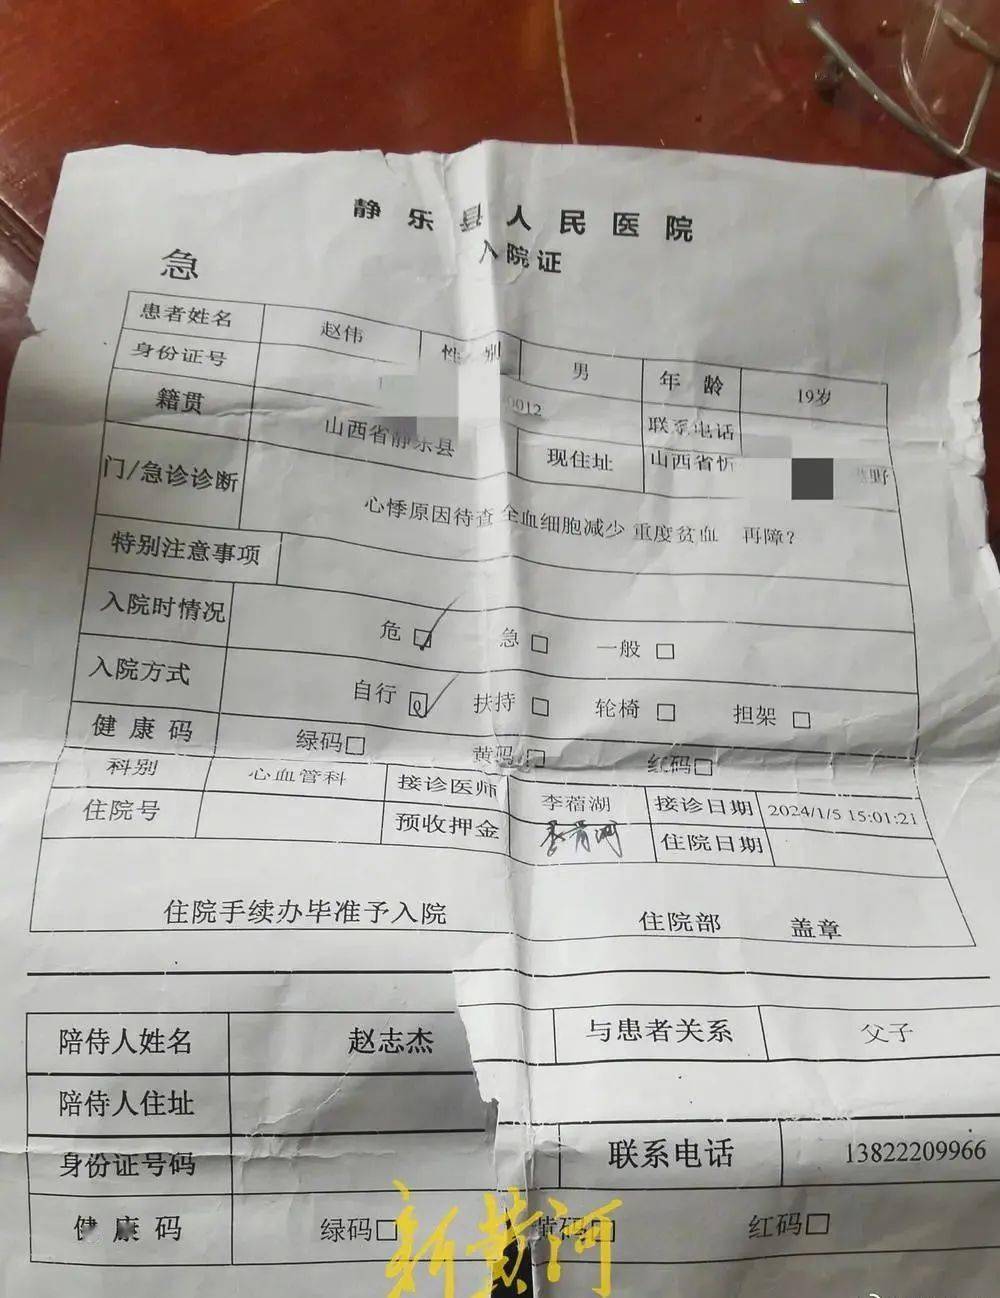 静乐县人民医院
入院证
急
患者姓名 赵伟 性别 男 年龄 19岁
身份证号 0012 联系电话
籍贯 山西省静乐县 现住址 山西省忻 野
门/急诊诊断 心悸原因待查 全血细胞减少 重度贫血 再障?
特别注意事项
入院时情况 危☑ 急□ 一般□
入院方式 自行☑ 扶持□ 轮椅□ 担架□
健康码 绿码□ 黄码□ 红码□
科别 心血管科 接诊医师 李蓿湖 接诊日期 2024/1/5 15:01:21
住院号 预收押金 住院日期
住院手续办毕准予入院 住院部 盖章
陪侍人姓名 赵志杰 与患者关系 父子
陪侍人住址
身份证号码 联系电话 13822209966
健康码 绿码□ 黄码□ 红码□
新黄河